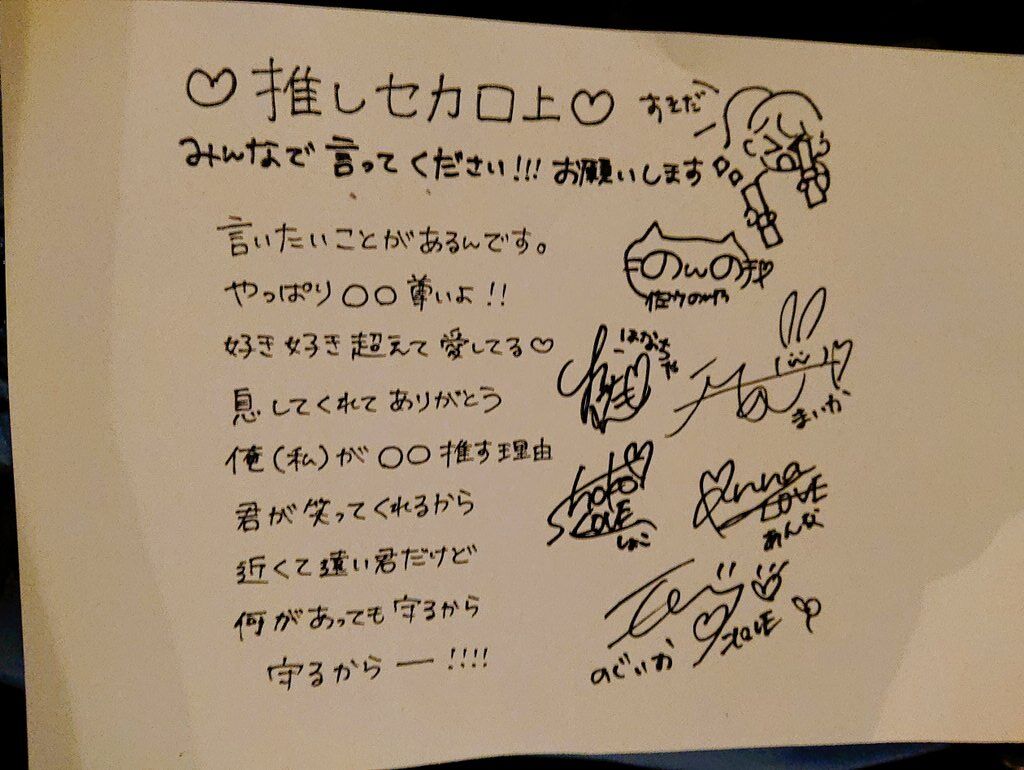 ♡推しセカロ上♡
みんなで言ってください!!! お願いします
言いたいことがあるんです。
やっぱり〇〇尊いよ!!
好き好き超えて愛してる♡
息してくれてありがとう
俺(私)が〇〇推す理由
君が笑ってくれるから
近くて遠い君だけど
何があっても守るから
守るからー!!!!
のんの
はなちゃん
まいか
Shoko
LOVE
しょこ
Anna
LOVE
あんな